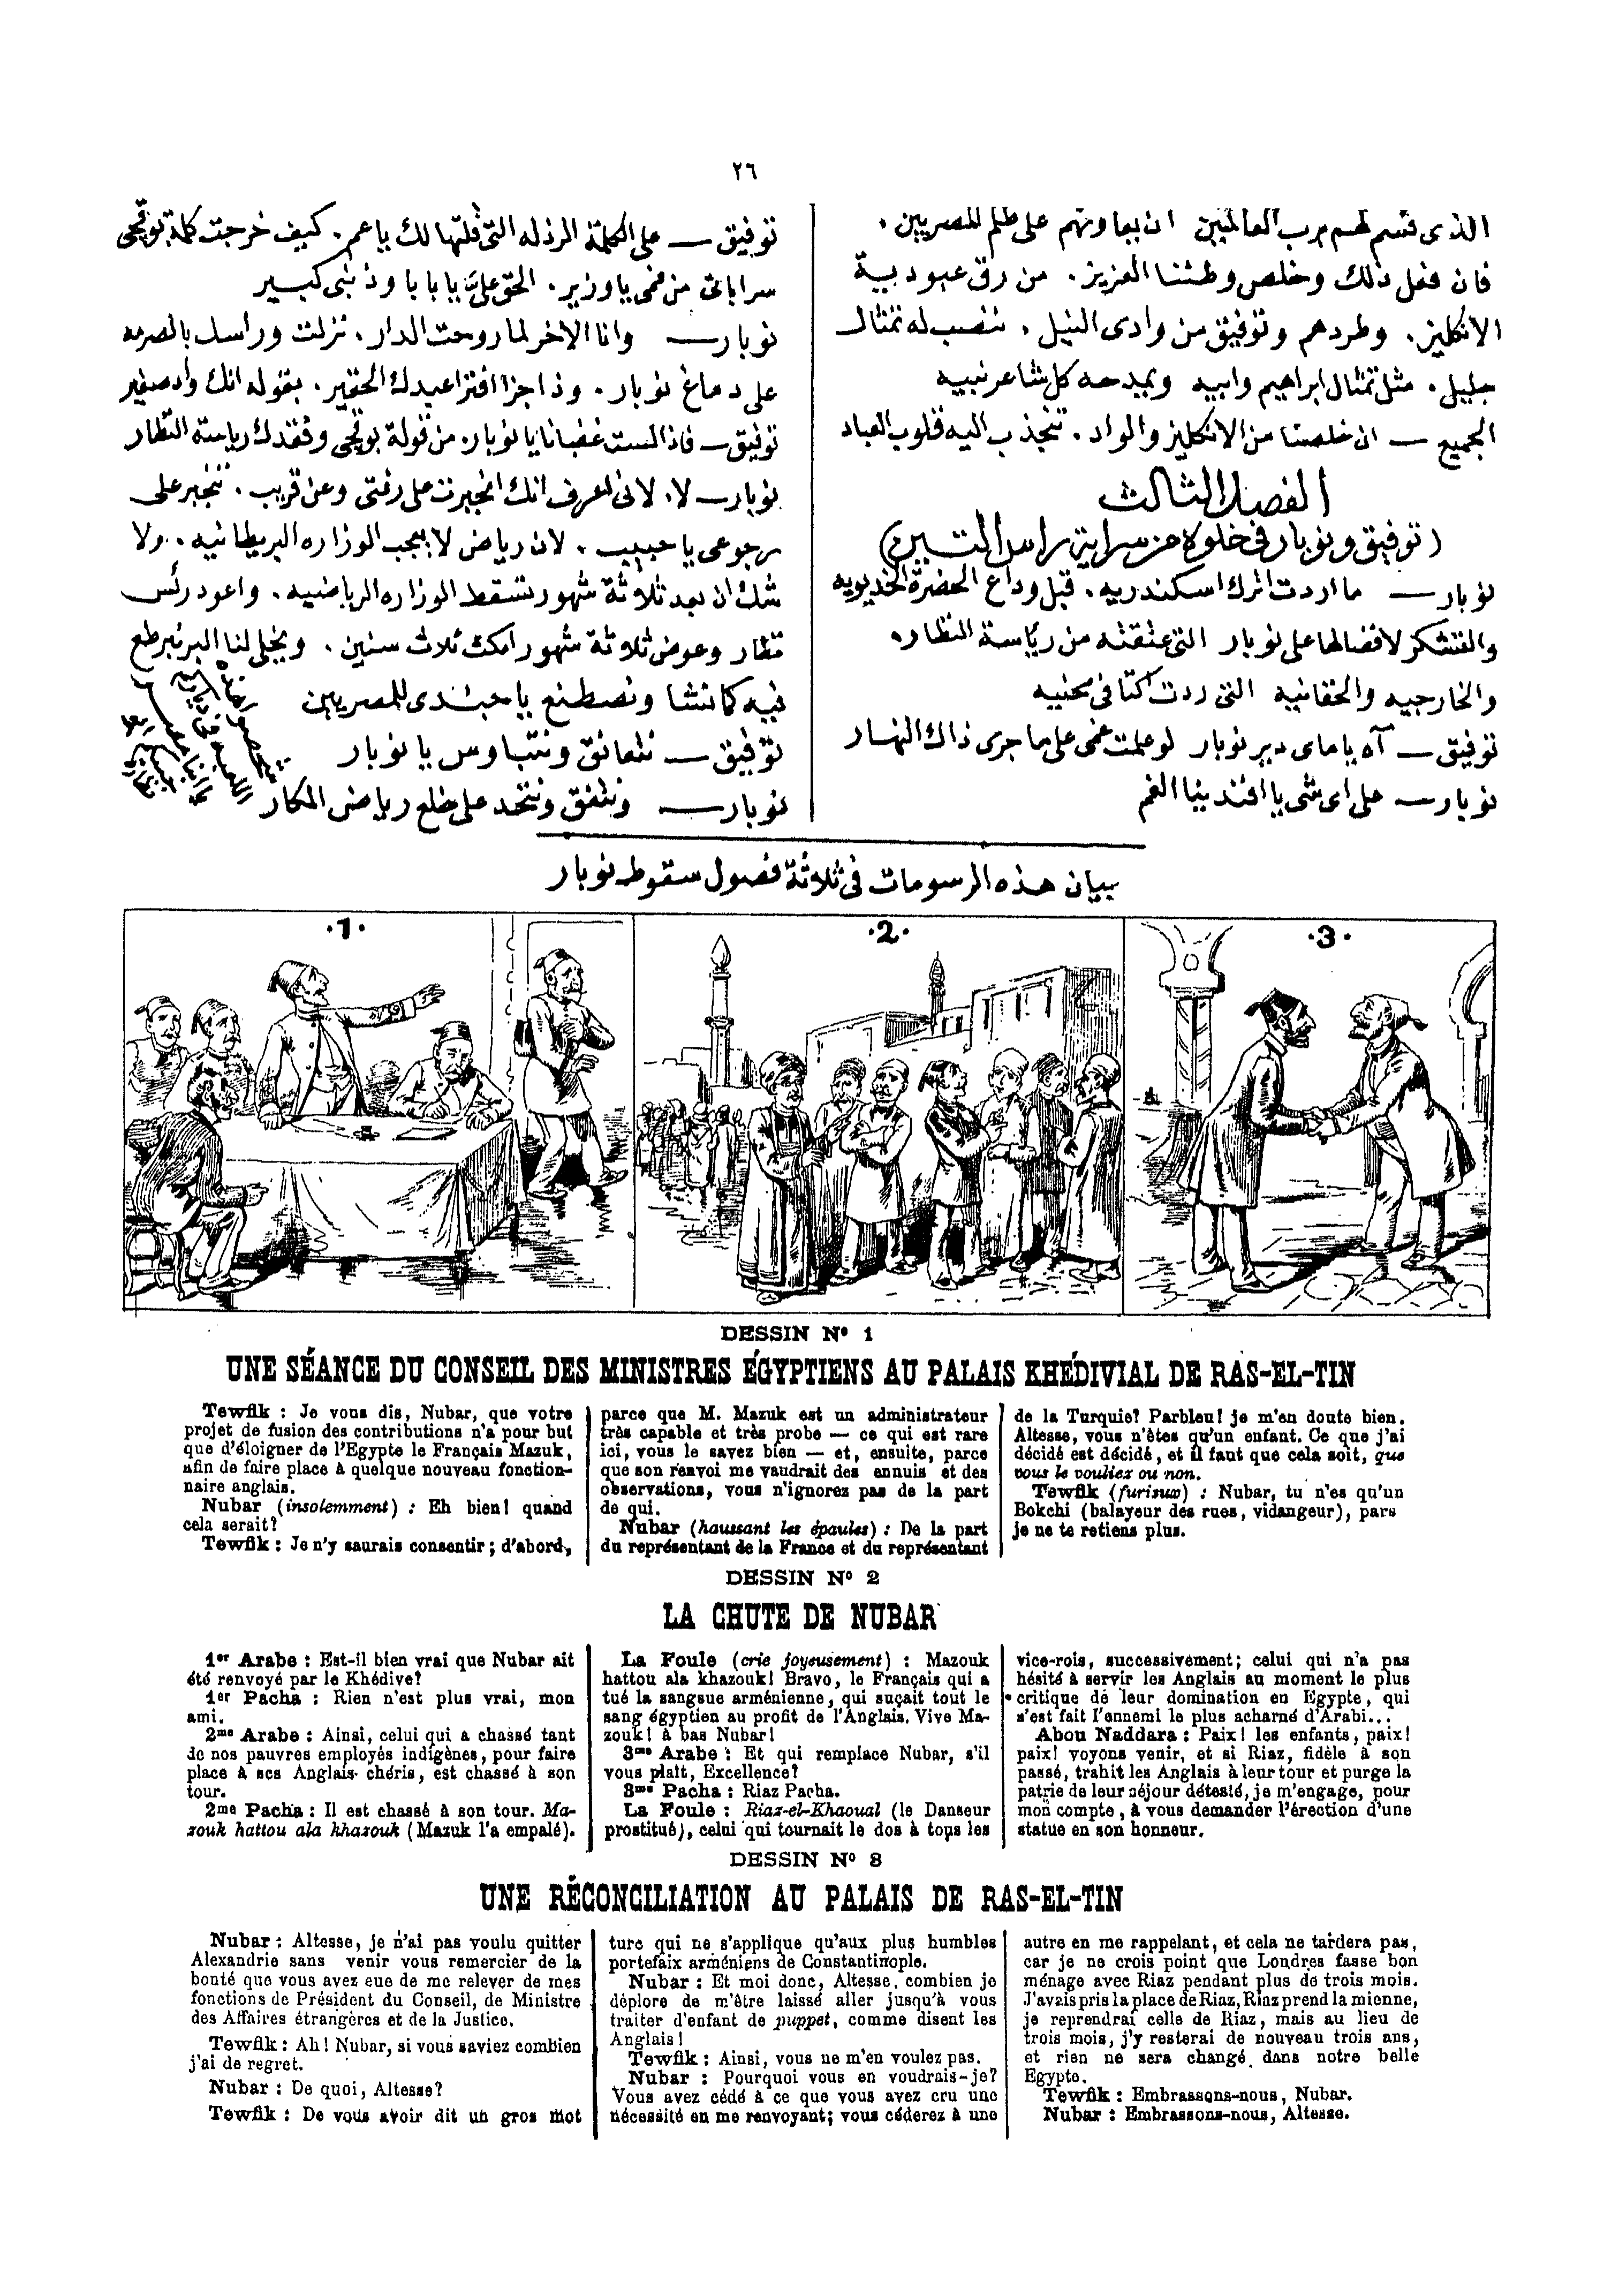 ٢٦
الذى قسم لهم رب العالمين ان يعاونهم على ظلم المصريين.
فان فعل ذلك وخلص وطننا العزيز. من رق عبودية
الانكليز. وطردهم وتوفيق من وادى النيل. ننصب له تمثال
جليل. مثل تمثال ابراهيم وابيه ويمدحه كل شاعر نبيه
الجميع — ان خلصنا من الانكليز والواد. تنجذب اليه قلوب العباد
الفصل الثالث
(توفيق ونوبار فى خلوة من سراية راس التين)
نوبار — ما اردت اترك اسكندريه. قبل وداع الحضرة الخديويه
والتشكر لافضالها على نوبار التى عتقته من رئاسة النظار.
والخارجيه والحقانيه التى ردت
توفيق — آه يا ماى دير نوبار لو علمت غمى على ما جرى ذاك النهار
نوبار — على اى شى يا افندينا الغم
توفيق — على الكلمة الرذله التى قلتها لك يا عم. كيف خرجت كلمة بوقجى
من فمى يا وزير. الحق على يا بابا وذنبى كبير
نوبار — وانا الاخر لما روحت الدار. نزلت بالصرمه
على دماغ نوبار. وذا جزا افترا عبدك الحقير. بقوله انك واد صغير
توفيق — فاذا لست غضبانا يا نوبار. من قولة بوقجى وفقدك رياسة النظار
نوبار — لا. لانى اعرف انك انجبرت على رفتى وعن قريب. تنجبر على
رجوعى يا حبيب. لان رياض لا يعجب الوزاره البريطانيه. ولا
شك ان بعد ثلاثة شهور تسقط الوزاره الرياضيه. واعود رئس
نظار وعوض ثلاثة شهور امكث ثلاث سنين. ويخلى لنا البر نبرطع
فيه كما نشا ونصطنع يا جندى للمصريين
توفيق — نتعانق ونتباوس يا نوبار
نوبار — ونتفق ونتحد على خلع رياض المكار
بيان هذه الرسومات فى ثلاثة فصول سقوط نوبار
·1·
·2·
·3·
DESSIN Nº 1
UNE SÉANCE DU CONSEIL DES MINISTRES ÉGYPTIENS AU PALAIS KHÉDIVIAL DE RAS-EL-TIN
Tewfik : Je vous dis, Nubar, que votre
projet de fusion des contributions n'a pour but
que d'éloigner de l'Egypte le Français Mazuk,
afin de faire place à quelque nouveau fonction-
naire anglais.
Nubar (insolemment) : Eh bien! quand
cela serait?
Tewfik : Je n'y saurais consentir ; d'abord,
parce que M. Mazuk est un administrateur
très capable et très probe — ce qui est rare
ici, vous le savez bien — et, ensuite, parce
que son renvoi me vaudrait des ennuis et des
observations, vous n'ignorez pas de la part
de qui.
Nubar (haussant les épaules) : De la part
du représentant de la France et du représentant
de la Turquie? Parbleu! je m'en doute bien.
Altesse, vous n'êtes qu'un enfant. Ce que j'ai
décidé est décidé, et il faut que cela soit, que
vous le vouliez ou non.
Tewfik (furieux) : Nubar, tu n'es qu'un
Bokchi (balayeur des rues, vidangeur), pars
je ne te retiens plus.
DESSIN Nº 2
LA CHUTE DE NUBAR
1er Arabe : Est-il bien vrai que Nubar ait
été renvoyé par le Khédive?
1er Pacha : Rien n'est plus vrai, mon
ami.
2me Arabe : Ainsi, celui qui a chassé tant
de nos pauvres employés indigènes, pour faire
place à ses Anglais chéris, est chassé à son
tour.
2me Pacha : Il est chassé à son tour. Ma-
zouk hattou ala khazouk (Mazuk l'a empalé).
La Foule (crie joyeusement) : Mazouk
hattou ala khazouk! Bravo, le Français qui a
tué la sangsue arménienne, qui suçait tout le
sang égyptien au profit de l'Anglais. Vive Ma-
zouk! à bas Nubar!
3me Arabe : Et qui remplace Nubar, s'il
vous plaît, Excellence?
3me Pacha : Riaz Pacha.
La Foule : Riaz-el-Khaoual (le Danseur
prostitué), celui qui tournait le dos à tous les
vice-rois, successivement; celui qui n'a pas
hésité à servir les Anglais au moment le plus
critique de leur domination en Egypte, qui
s'est fait l'ennemi le plus acharné d'Arabi...
Abou Naddara : Paix! les enfants, paix!
paix! voyons venir, et si Riaz, fidèle à son
passé, trahit les Anglais à leur tour et purge la
patrie de leur séjour détesté, je m'engage, pour
mon compte, à vous demander l'érection d'une
statue en son honneur.
DESSIN Nº 3
UNE RÉCONCILIATION AU PALAIS DE RAS-EL-TIN
Nubar : Altesse, je n'ai pas voulu quitter
Alexandrie sans venir vous remercier de la
bonté que vous avez eue de me relever de mes
fonctions de Président du Conseil, de Ministre
des Affaires étrangères et de la Justice.
Tewfik : Ah! Nubar, si vous saviez combien
j'ai de regret.
Nubar : De quoi, Altesse?
Tewfik : De vous avoir dit un gros mot
turc qui ne s'applique qu'aux plus humbles
portefaix arméniens de Constantinople.
Nubar : Et moi donc, Altesse, combien je
déplore de m'être laissé aller jusqu'à vous
traiter d'enfant de puppet, comme disent les
Anglais!
Tewfik : Ainsi, vous ne m'en voulez pas.
Nubar : Pourquoi vous en voudrais-je?
Vous avez cédé à ce que vous avez cru une
nécessité en me renvoyant; vous céderez à une
autre en me rappelant, et cela ne tardera pas,
car je ne crois point que Londres fasse bon
ménage avec Riaz pendant plus de trois mois.
J'avais pris la place de Riaz, Riaz prend la mienne,
je reprendrai celle de Riaz, mais au lieu de
trois mois, j'y resterai de nouveau trois ans,
et rien ne sera changé dans notre belle
Egypte.
Tewfik : Embrassons-nous, Nubar.
Nubar : Embrassons-nous, Altesse.